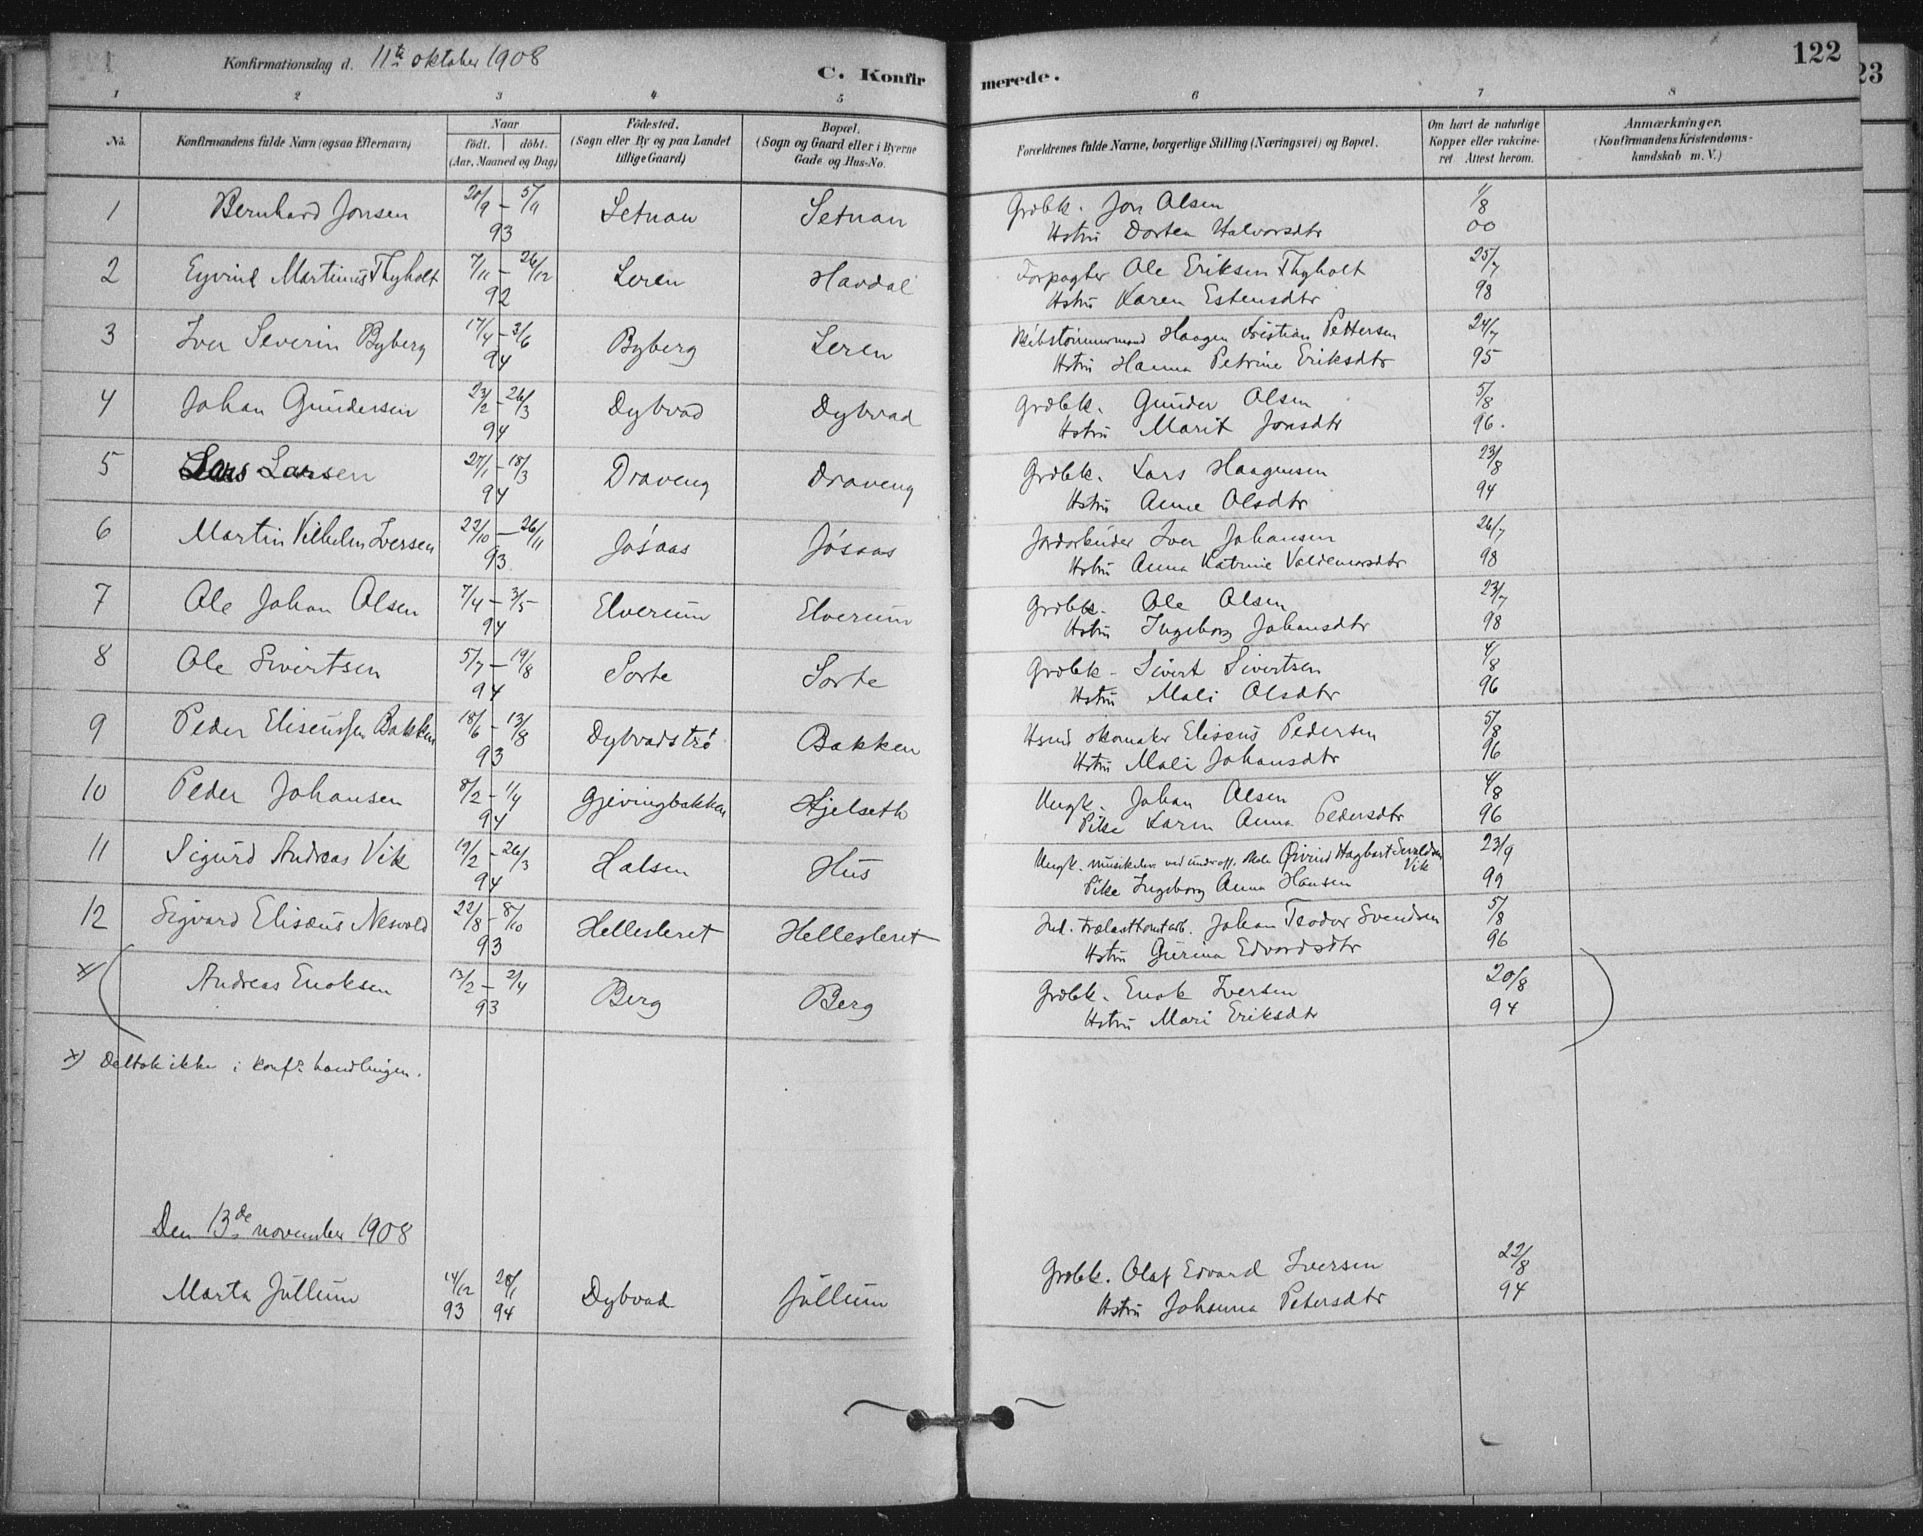 122
23
Konfirmationsdag d. 11te oktober 1908
C. Konfirmerede.
1 2 3 4 5 6 7 8
No. Konfirmandens fulde Navn (ogsaa Efternavn) Naar født. døbt. (Aar, Maaned og Dag) Fødested. (Sogn eller By og paa Landet tillige Gaard) Bopæl. (Sogn og Gaard eller i Byerne Gade og Hus-No. Forældrenes fulde Navne, borgerlige Stilling (Næringsvei) og Bopæl. Om havt de naturlige Kopper eller vakcineret. Attest herom. Anmærkninger. (Konfirmandens Kristendomskundskab m. V.)
1 Bernhard Jonsen 20/9 – 5/11 93 Setnan Setnan Grdbk. Jon Olsen 1/8 00
Hstru Dorten Halvorsdtr
2 Eyvind Martinus Thyholt 7/11 – 26/12 92 Leren Havdal Forpagter Ole Eriksen Thyholt 25/7 98
Hstru Karen Estensdtr
3 Iver Severin Byberg 17/4 – 3/6 94 Byberg Leren Skibstømmermand Haagen Kristian Pettersen 24/7 95
Hstru Hanna Petrine Eriksdtr
4 Johan Gundersen 23/2 – 26/3 94 Dybvad Dybvad Grdbk. Gunder Olsen 5/8 96.
Hstru Marit Jonsdtr
5 Lars Larsen 27/1 – 18/3 94 Draveng Draveng Grdbk. Lars Haagensen 23/8 94
Hstru Anne Olsdtr
6 Martin Vilhelm Iversen 22/10 – 26/11 93. Jøsaas Jøsaas Jordarbeider Iver Johansen 26/7 98
Hstru Anna Katrine Valdemarsdtr
7 Ole Johan Olsen 7/4 – 3/5 94 Elverum Elverum Grdbk. Ole Olsen 23/7 98
Hstru Ingeborg Johansdtr
8 Ole Sivertsen 5/7 – 19/8 94 Sorte Sorte Grdbk – Sivert Sivertsen 4/8 96
Hstru Mali Olsdtr
9 Peder Eliseussen Bakken 18/6 – 13/8 93 Dybvadstrø Bakken Hsmd skomaker Eliseus Pedersen 5/8 96
Hstru Mali Johansdtr
10 Peder Johansen 8/2 – 1/4 94 Gjevingbakken Hjelseth Ungk. Johan Olsen 4/8 96
Pike Karen Anna Pedersdtr
11 Sigurd Andreas Vik 19/2 – 26/3 94 Halsen Hus Ungk. musikelev ved underoff. skole Øivind Hagbart Vik 23/9 99
Pike Ingeborg Anna Hansen
12 Sigvard Elisæus Nesvold 22/8 – 8/10 93 Hellesleret Hellesleret Ind. Trælasttomtarb. Johan Teodor Svendsen 5/8 96
Hstru Gurina Edvardsdtr
x) ( Andreas Enoksen 13/2 – 2/4 93 Berg Berg Grdbk. Enok Iversen 20/8 94 )
Hstru Mari Eriksdtr
x) Deltok ikke i konf. handlingen.
Den 13de november 1908
Marta Jullum 14/12 93 28/1 94 Dybvad Jullum Grdbk. Olaf Edvard Iversen 22/8 94
Hstru Johanna Petersdtr